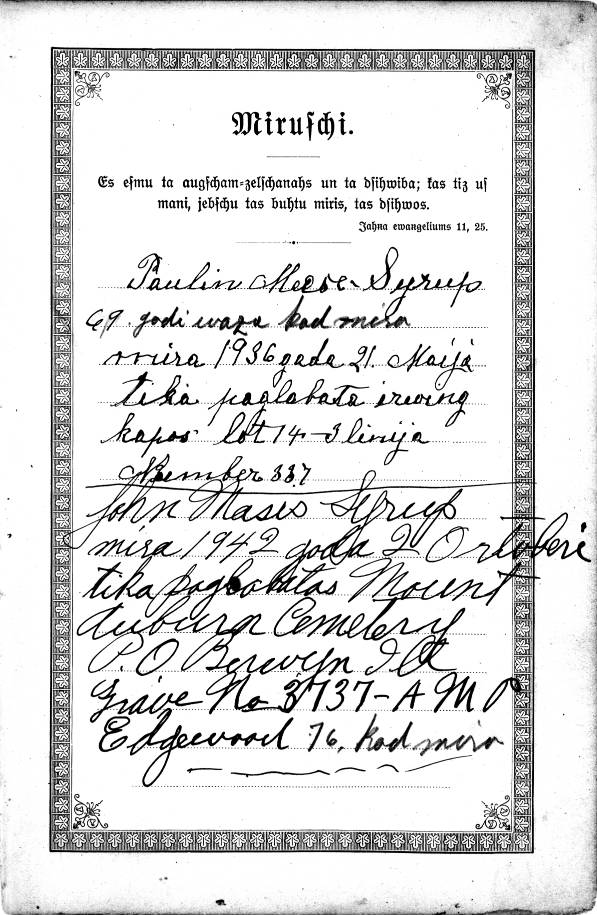 Miruſchi.
Es eſmu ta augſcham=zelſchanahs un ta dſihwiba; kas tiz uſ
mani, jebſchu tas buhtu miris, tas dſihwos.
Jahna ewangeliums 11, 25.
Paulin Syrup
69 godi waza kad mira
mira 1936 gada 21. Maija
tika paglabata irwing
kapos lot 14-3 linija
Nummber 337
John Masis Syrup
mira 1942 goda 2 Octoberi
tika paglabatas Mount
Auburn Cemetery
P.O Berwyn Ill
Grave No 3737-A M P
Edgewood 76. kad mira